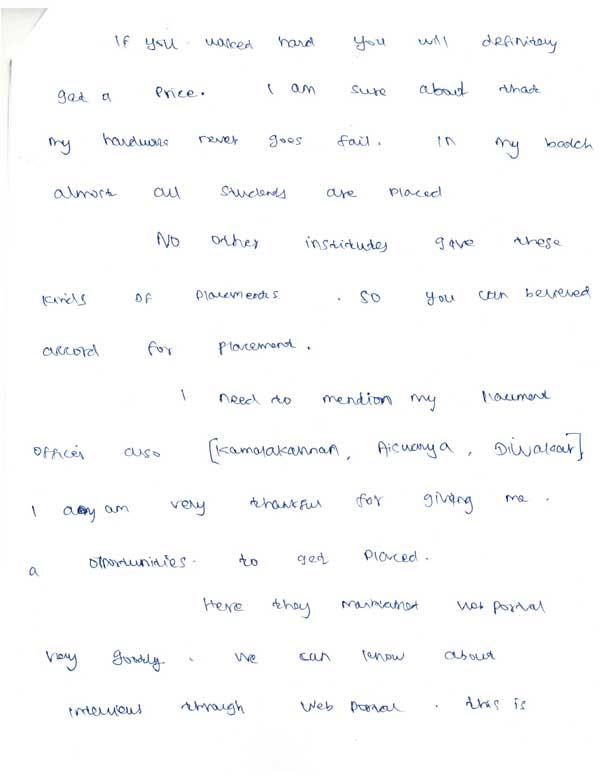 If you walked hard you will definitely
get a Price. I am sure about that
my hardware never goes fail. In my batch
almost all students are placed
No other institutes gave these
kinds of placements. So you can believed
accord for placement.
I need to mention my Placement
officer also [Kamalakannan, Aiswarya, Diwakar]
I am very thankful for giving me.
a opportunities. to get placed.
Here they web portal
very goodly. We can know about
interviews through Web portal. this is